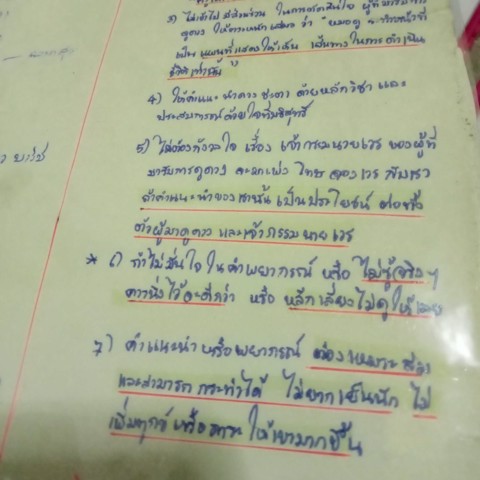 3) ไม่เข้าไปมีส่วนร่วม ในการตัดสินใจ
ดูดวง ให้ตระหนักเสมอ ว่า หมอดู
เป็น แผนที่แสดงให้เห็น เส้นทางในการดำเนิน
ชีวิตเท่านั้น
4) ให้คำแนะนำดวงชะตา ด้วยหลักวิชา และ
ประสบการณ์ ด้วยใจที่บริสุทธิ์
5) ไม่ต้องกังวลใจ เรื่อง เจ้ากรรมนายเวร ของผู้ที่
มารับการดูดวง จะมาเพ่งโทษ จองเวร กับเรา
ถ้าคำแนะนำของเรานั้นเป็นประโยชน์ ต่อทั้ง
ตัวผู้มาดูดวง และเจ้ากรรมนายเวร
* 6) ถ้าไม่มั่นใจ ในคำพยากรณ์ หรือ ไม่รู้จริงๆ
ควรนิ่งไว้จะดีกว่า หรือ หลีกเลี่ยงไม่ดูให้เลย
7) คำแนะนำหรือพยากรณ์ ต้องเหมาะสม
และสามารถกระทำได้ ไม่ยากเย็นนัก ไม่
เพิ่มทุกข์หรือภาระ ให้เขามากขึ้น